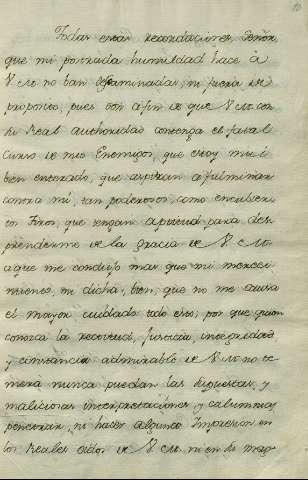 Todas estas recordaciones, Señor,
que mi postrada humildad hace à
V. M. no ban descaminadas, ni fuera de
proposito, pues son a fin de que V. M. con
su Real authoridad contenga el fatal
Curso de mis Enemigos, que estoy mui
bien enterado, que aspiran a fulminar
contra mi, tan poderosos, como encubier
tos tiros, que tengan aptitud para des
prenderme de la gracia de V. M.
aque me condujo mas que mi mereci
miento, mi dicha; bien, que no me causa
el mayor cuidado todo esto, por que quien
conozca la rectitud, Justicia, integridad
y constancia admirable de V. M. no te
merà nunca puedan las supuestas, y
maliciosas interpretaciones, y calumnias
penetrar, ni hacer alguna Impresion en
los Reales oidos de V. M. ni en su mag-